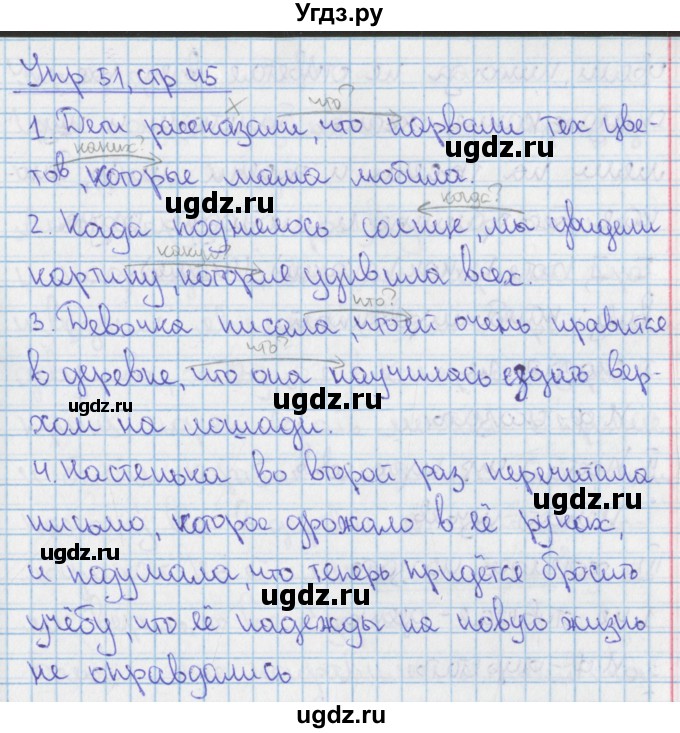 Угдз.ру
Упр 51, стр 45
х что?
1. Дети рассказали, что нарвали тех цве-
каких?
тов, которые мама любила.
ugdz.ru ugdz.ru
когда?
2. Когда поднялось солнце, мы увидели
какую?
картину, которая удивила всех.
ugdz.ru ugdz.ru
что?
3. Девочка писала, что ей очень нравится
что?
в деревне, что она научилась ездить вер-
ugdz.ru ugdz.ru
хом на лошади.
4. Настенька во второй раз перечитала
ugdz.ru
письмо, которое дрожало в её руках,
ugdz.ru
и подумала, что теперь придётся бросить
ugdz.ru
учёбу, что её надежды на новую жизнь
ugdz.ru
не оправдались
ugdz.ru